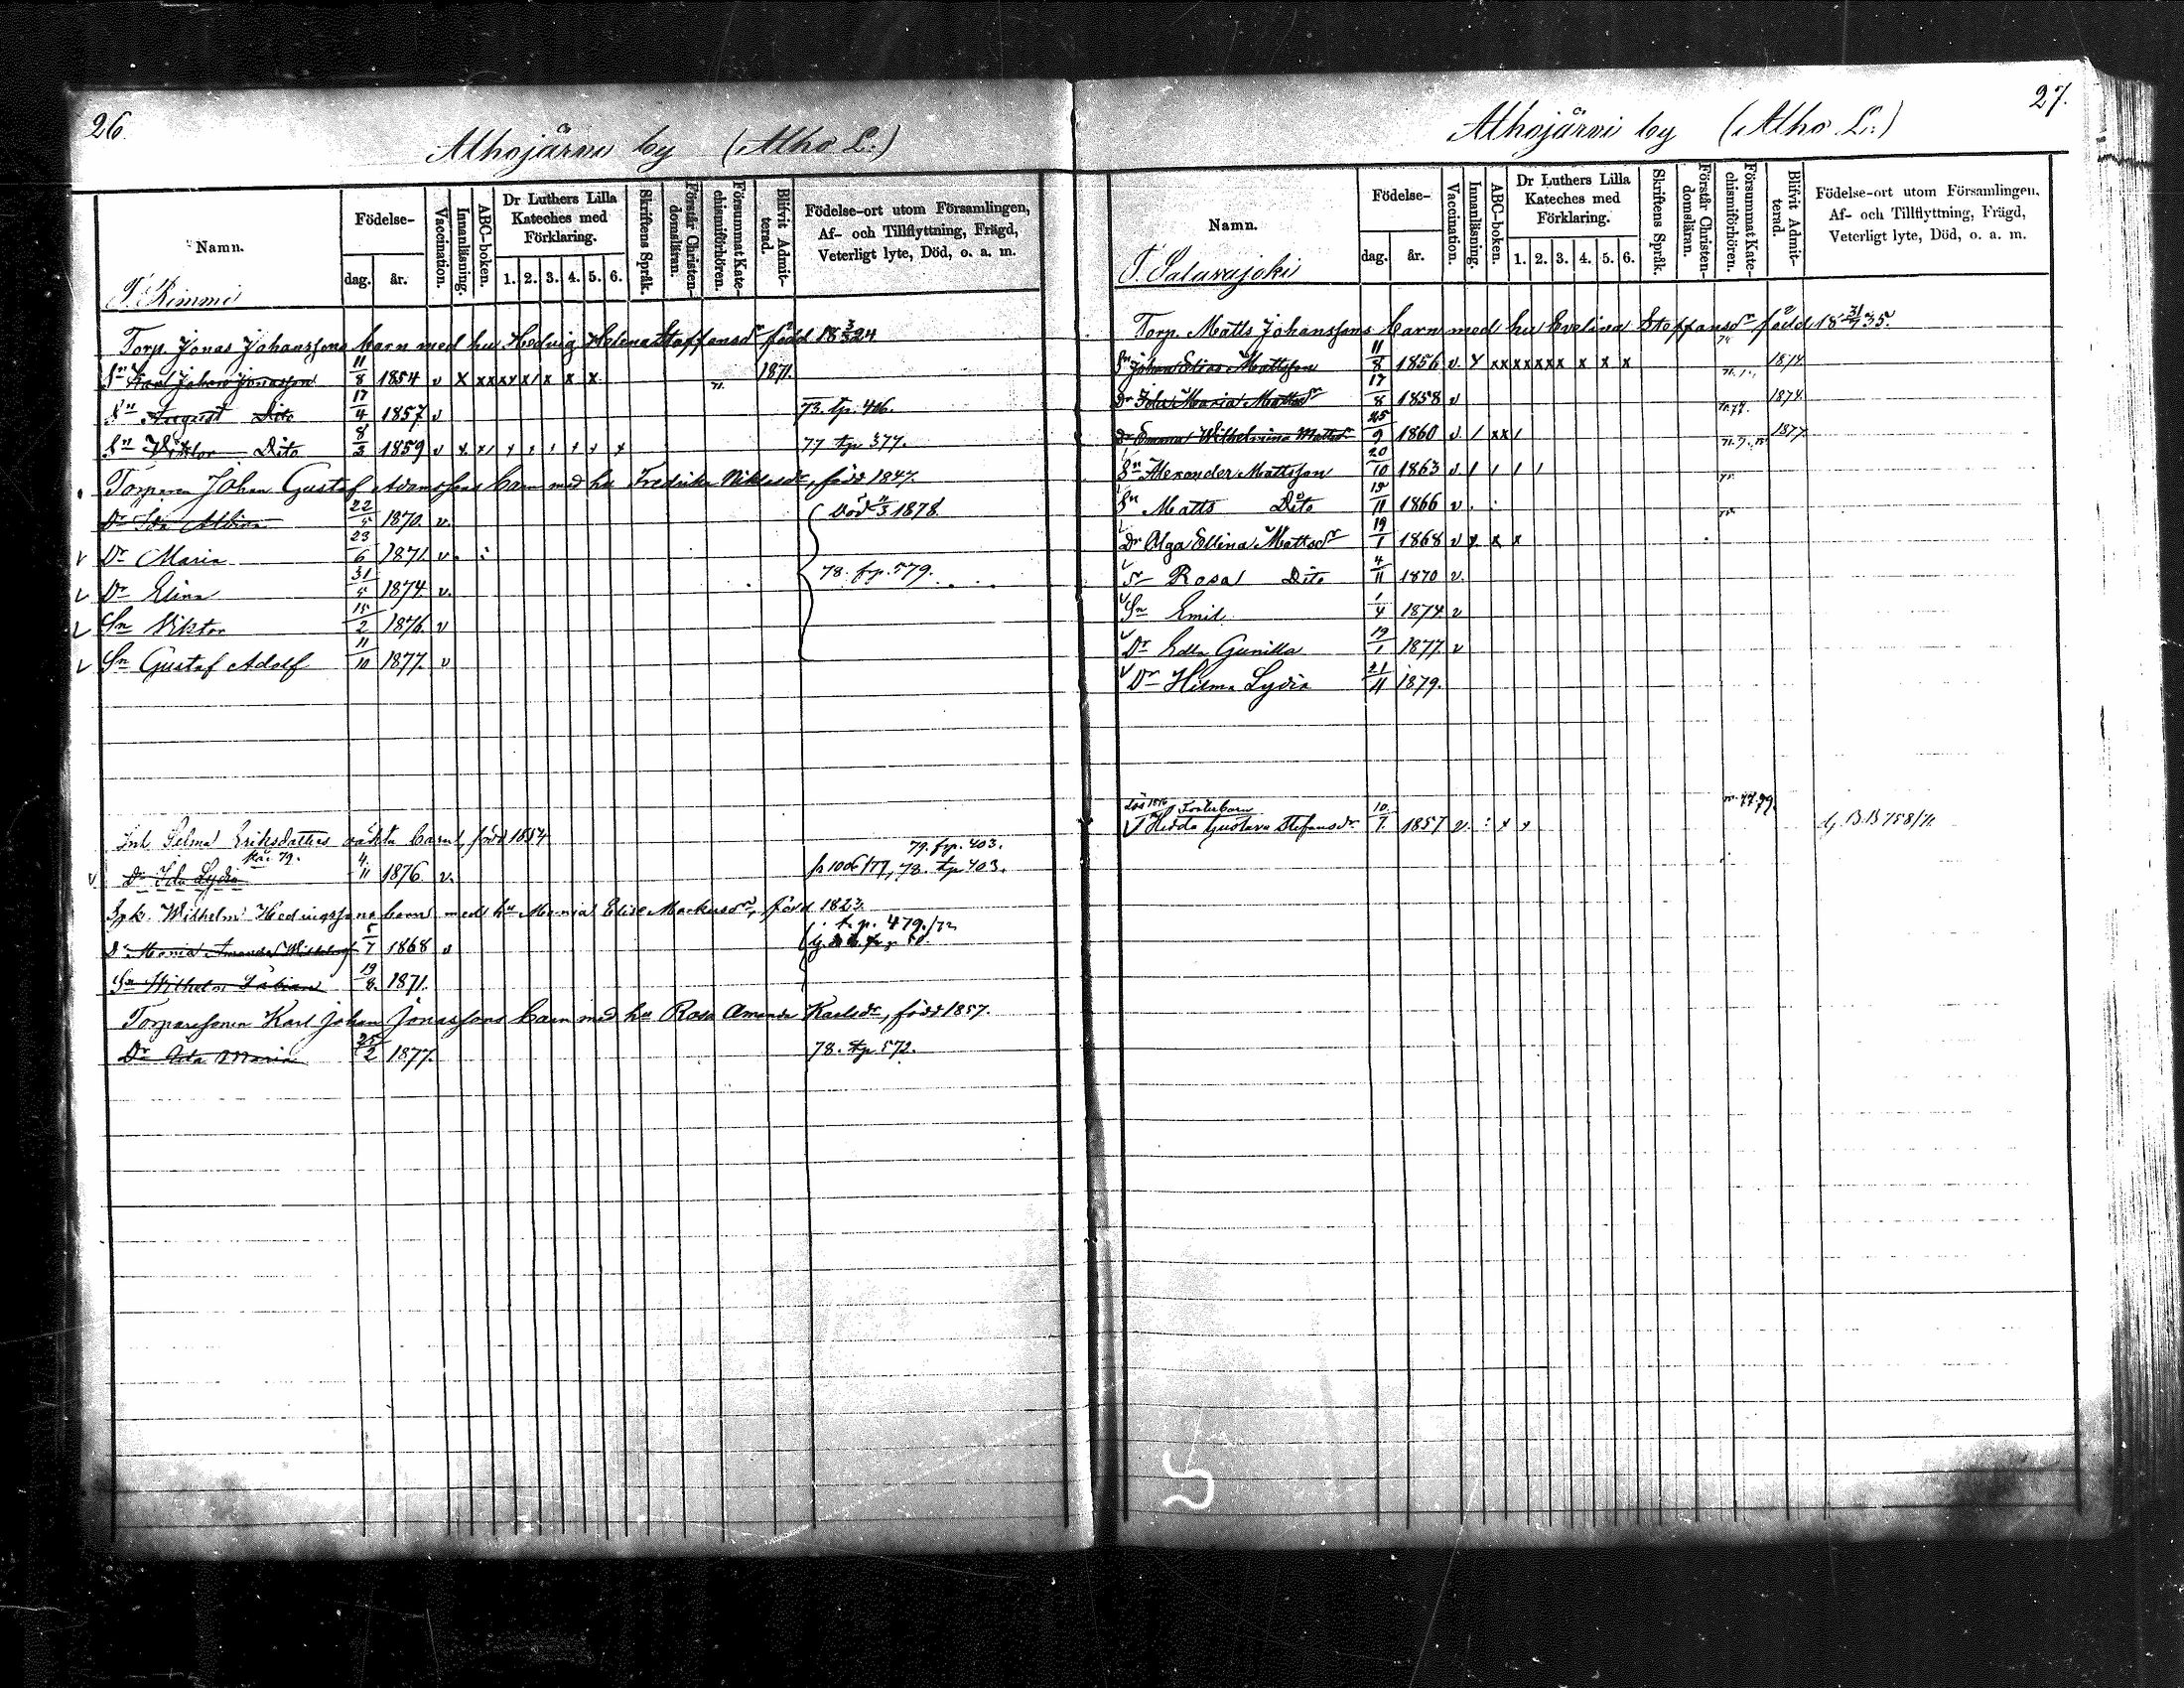 26.
Alhojärvi by (Alho L.)
Namn.
Födelse-
dag. år.
Vaccination.
Innanläsning.
ABC-boken.
Dr Luthers Lilla Kateches med Förklaring.
1. 2. 3. 4. 5. 6.
Skriftens Språk.
Förstår Christendomsläran.
Försummat Katechismiförhören.
Blifvit Admitterad.
Födelse-ort utom Församlingen, Af- och Tillflyttning, Frägd, Veterligt lyte, Död, o. a. m.
T. Rimmi
Torp. Jonas Johanssons barn med hu Hedvig Helena Staffansdr född 18 3/3 24
Sn Karl Johan Jonasson 11/8 1854 v x xx xx x/ x x x 71. 1871.
Sn August Dito 17/4 1857 v 73. tp. 416.
Sn Viktor Dito 8/3 1859 v 77 tp 377.
Torparen Johan Gustaf Adamssons barn med hu Fredrika Niklasdr, född 1847.
Dr Ida Albina 22/5 1870. v. Död 11/3 1878.
Dr Maria 23/6 1871. v.
Dr Elina 31/5 1874 v. 78. frp. 579.
Sn Viktor 15/2 1876. v
Sn Gustaf Adolf 11/10 1877. v
Inh. Selma Eriksdotters oäkta barn, född 1854
79. frp. 403.
Dr Ida Lydia 4/11 1876 v. fr 1006/77, 78. tp 403.
Spk. Wilhelm Hedvigssons barn med hu Maria Elise Markusdr, född 1823.
Dr Maria Amanda Wilhelmsdr 5/7 1868 v t. p. 479./72
Sn Wilhelm Fabian 19/8. 1871.
Torparesonen Karl Johan Jonassons barn med hu Rosa Amanda Karlsdr, född 1857.
Dr Ida Maria 25/2 1877. 78. tp 572.
27.
Alhojärvi by (Alho L.)
Namn.
Födelse-
dag. år.
Vaccination.
Innanläsning.
ABC-boken.
Dr Luthers Lilla Kateches med Förklaring.
1. 2. 3. 4. 5. 6.
Skriftens Språk.
Förstår Christendomsläran.
Försummat Katechismiförhören.
Blifvit Admitterad.
Födelse-ort utom Församlingen, Af- och Tillflyttning, Frägd, Veterligt lyte, Död, o. a. m.
T. Salavajoki
Torp. Matts Johanssons barn med hu Evelina Steffansdr född 18 31/7 35.
Sn Johan Elias Mattsson 11/8 1856 v. x xx xx xx x x x x 1874.
Dr Ida Maria Mattsdr 17/8 1858 v 1874.
Dr Emma Wilhelmina Mattsdr 25/9 1860 v. / xx / 1877.
Sn Alexander Mattsson 20/10 1863 v. / / / /
Sn Matts Dito 15/11 1866 v.
Dr Olga Ellina Mattsdr 19/1 1868 v x. x x
Dr Rosa Dito 4/11 1870 v.
Sn Emil 1/4 1874 v
Dr Edla Gunilla 19/1 1877 v
Dr Hilma Lydia 21/11 1879.
Fosterbarn
Hedda Gustava Stefansdr 10/7. 1857 v. 77.79. B.B 758/71.